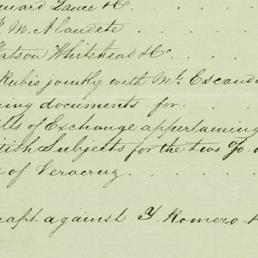 & Co.
J. M. Alaudete
Watson Whitehead & Co.
Rubis jointly with Mr. Escand
documents for
ills of Exchange appertaining
tish Subjects for the two %
of Veracruz
raft against Y. Romero